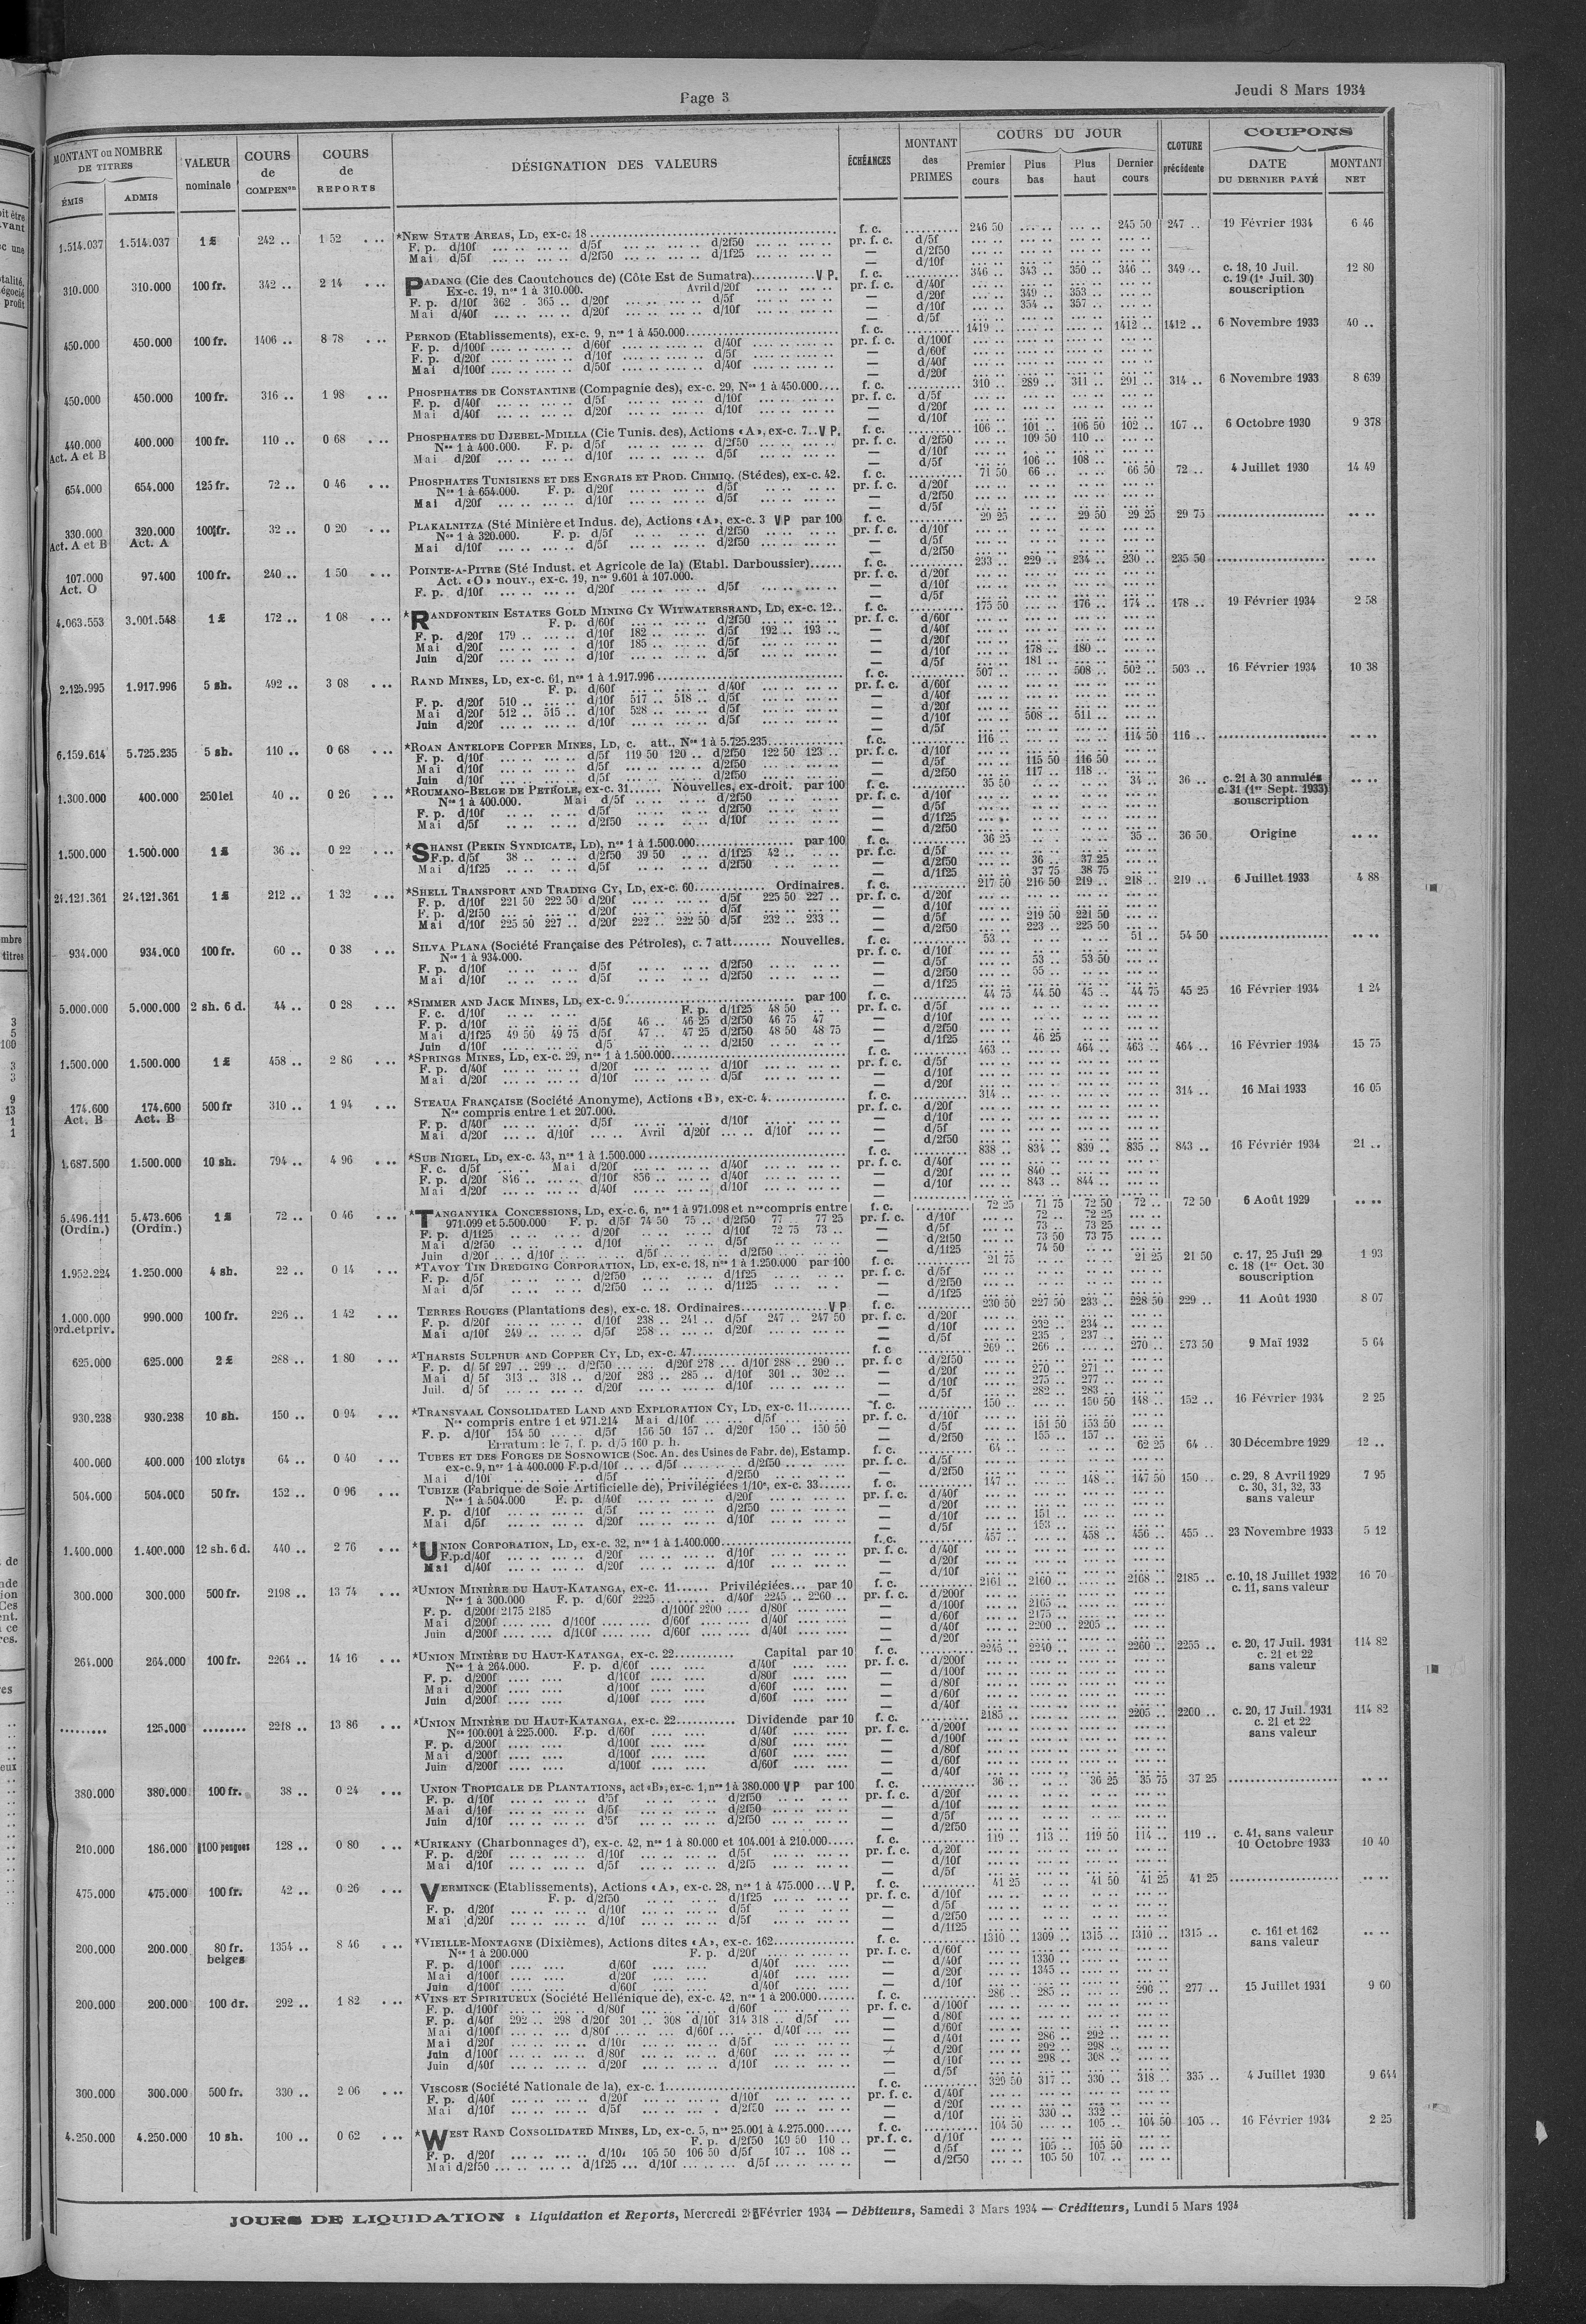 Page 3
Jeudi 8 Mars 1934
MONTANT ou NOMBRE DE TITRES
ÉMIS
ADMIS
VALEUR nominale
COURS de COMPENon
COURS de REPORTS
DÉSIGNATION DES VALEURS
ÉCHÉANCES
MONTANT des PRIMES
COURS DU JOUR
Premier cours
Plus bas
Plus haut
Dernier cours
CLOTURE précédente
COUPONS
DATE DU DERNIER PAYÉ
MONTANT NET
1.514.037 1.514.037 1 £ 242 .. 1 52 *NEW STATE AREAS, LD, ex-c. 18 f. c. 246 50 245 50 247 .. 19 Février 1934 6 46
F. p. d/10f d/5f d/2f50 pr. f. c. d/5f
Mai d/5f d/2f50 d/1f25 — d/2f50
— d/10f
310.000 310.000 100 fr. 342 .. 2 14 PADANG (Cie des Caoutchoucs de) (Côte Est de Sumatra) V P. f. c. 346 .. 343 .. 350 .. 346 .. 349 .. c. 18, 10 Juil. 12 80
Ex-c. 19, nos 1 à 310.000. Avril d/20f pr. f. c. d/40f c. 19 (1er Juil. 30)
F. p. d/10f 362 . 365 .. d/20f d/5f — d/20f 349 .. 353 .. souscription
Mai d/40f d/20f d/10f — d/10f 354 .. 357 ..
— d/5f
450.000 450.000 100 fr. 1406 .. 8 78 PERNOD (Etablissements), ex-c. 9, nos 1 à 450.000 f. c. 1419 .. 1412 .. 1412 .. 6 Novembre 1933 40 ..
F. p. d/100f d/60f d/40f pr. f. c. d/100f
F. p. d/20f d/10f d/5f — d/60f
Mai d/100f d/50f d/40f — d/40f
— d/20f
450.000 450.000 100 fr. 316 .. 1 98 PHOSPHATES DE CONSTANTINE (Compagnie des), ex-c. 29, Nos 1 à 450.000 f. c. 310 .. 289 .. 311 .. 291 .. 314 .. 6 Novembre 1933 8 639
F. p. d/40f d/5f d/10f pr. f. c. d/5f
Mai d/40f d/20f d/10f — d/20f
— d/10f
440.000 Act. A et B 400.000 100 fr. 110 .. 0 68 PHOSPHATES DU DJEBEL-MDILLA (Cie Tunis. des), Actions «A», ex-c. 7.. V P. f. c. 106 .. 101 .. 106 50 102 .. 107 .. 6 Octobre 1930 9 378
Nos 1 à 400.000. F. p. d/5f d/2f50 pr. f. c. d/2f50 109 50 110 ..
Mai d/20f d/10f d/5f — d/10f
— d/5f 106 .. 108 ..
654.000 654.000 125 fr. 72 .. 0 46 PHOSPHATES TUNISIENS ET DES ENGRAIS ET PROD. CHIMIQ. (Sté des), ex-c. 42. f. c. 71 50 66 .. 66 50 72 .. 4 Juillet 1930 14 49
Nos 1 à 654.000. F. p. d/20f d/5f pr. f. c. d/20f
Mai d/20f d/10f d/5f — d/2f50
— d/5f
330.000 Act. A et B 320.000 Act. A 100 fr. 32 .. 0 20 PLAKALNITZA (Sté Minière et Indus. de), Actions «A», ex-c. 3 V P par 100 f. c. 29 25 29 50 29 25 29 75
Nos 1 à 320.000. F. p. d/5f d/2f50 pr. f. c. d/10f
Mai d/10f d/5f d/2f50 — d/5f
— d/2f50
107.000 Act. O 97.400 100 fr. 240 .. 1 50 POINTE-A-PITRE (Sté Indust. et Agricole de la) (Etabl. Darboussier) f. c. 233 .. 229 .. 234 .. 230 .. 235 50
Act. «O» nouv., ex-c. 19, nos 9.601 à 107.000. pr. f. c. d/20f
F. p. d/10f d/20f d/5f — d/10f
— d/5f
4.063.553 3.001.548 1 £ 172 .. 1 08 *RANDFONTEIN ESTATES GOLD MINING CY WITWATERSRAND, LD, ex-c. 12.. f. c. 175 50 176 .. 174 .. 178 .. 19 Février 1934 2 58
F. p. d/60f d/2f50 pr. f. c. d/60f
F. p. d/20f 179 .. d/10f 182 .. d/5f 192 .. 193 .. — d/40f
Mai d/20f d/10f 185 .. d/5f — d/20f
Juin d/20f d/10f d/5f — d/10f 178 .. 180 ..
— d/5f 181 ..
2.125.995 1.917.996 5 sh. 492 .. 3 08 RAND MINES, LD, ex-c. 61, nos 1 à 1.917.996 f. c. 507 .. 508 .. 502 .. 503 .. 16 Février 1934 10 38
F. p. d/60f d/40f pr. f. c. d/60f
F. p. d/20f 510 .. d/10f 517 .. 518 .. d/5f — d/40f
Mai d/20f 512 .. 515 .. d/10f 528 .. d/5f — d/20f
Juin d/20f d/10f d/5f — d/10f 508 .. 511 ..
— d/5f
6.159.614 5.725.235 5 sh. 110 .. 0 68 *ROAN ANTELOPE COPPER MINES, LD, c. att., Nos 1 à 5.725.235 f. c. 116 .. 114 50 116 ..
F. p. d/10f d/5f 119 50 120 .. d/2f50 122 50 123 .. pr. f. c. d/10f
Mai d/10f d/5f d/2f50 — d/5f 115 50 116 50
Juin d/10f d/5f d/2f50 — d/2f50 117 .. 118 ..
1.300.000 400.000 250 lei 40 .. 0 26 *ROUMANO-BELGE DE PETROLE, ex-c. 31 Nouvelles, ex-droit. par 100 f. c. 35 50 34 .. 36 .. c. 21 à 30 annulés
Nos 1 à 400.000. Mai d/5f d/2f50 pr. f. c. d/10f c. 31 (1er Sept. 1933)
F. p. d/10f d/5f d/2f50 — d/5f souscription
Mai d/5f d/2f50 d/10f — d/1f25
— d/2f50
1.500.000 1.500.000 1 £ 36 .. 0 22 *SHANSI (PEKIN SYNDICATE, LD), nos 1 à 1.500.000 par 100 f. c. 36 25 35 .. 36 50 Origine
F. p. d/5f 38 .. d/2f50 39 50 d/1f25 42 .. pr. f. c. d/5f
Mai d/1f25 d/5f d/2f50 — d/2f50 36 .. 37 25
— d/1f25 37 75 38 75
24.121.361 24.121.361 1 £ 212 .. 1 32 *SHELL TRANSPORT AND TRADING CY, LD, ex-c. 60 Ordinaires. f. c. 217 50 216 50 219 .. 218 .. 219 .. 6 Juillet 1933 4 88
F. p. d/10f 221 50 222 50 d/20f d/5f 225 50 227 .. pr. f. c. d/20f
F. p. d/2f50 d/20f d/5f — d/10f
Mai d/10f 225 50 227 .. d/20f 222 .. 222 50 d/5f 232 .. 233 .. — d/5f 219 50 221 50
— d/2f50 223 .. 225 50
934.000 934.000 100 fr. 60 .. 0 38 SILVA PLANA (Société Française des Pétroles), c. 7 att. Nouvelles. f. c. 53 .. 51 .. 54 50
Nos 1 à 934.000. pr. f. c. d/10f
F. p. d/10f d/5f d/2f50 — d/5f 53 .. 53 50
Mai d/10f d/5f d/2f50 — d/2f50 55 ..
— d/1f25
5.000.000 5.000.000 2 sh. 6 d. 44 .. 0 28 *SIMMER AND JACK MINES, LD, ex-c. 9. par 100 f. c. 44 75 44 50 45 .. 44 75 45 25 16 Février 1934 1 24
F. c. d/10f F. p. d/1f25 48 50 pr. f. c. d/5f
F. p. d/10f d/5f 46 .. 46 25 d/2f50 46 75 47 — d/10f
Mai d/1f25 49 50 49 75 d/5f 47 .. 47 25 d/2f50 48 50 48 75 — d/2f50
Juin d/10f d/5 d/2f50 — d/1f25 46 25
1.500.000 1.500.000 1 £ 458 .. 2 86 *SPRINGS MINES, LD, ex-c. 29, nos 1 à 1.500.000 f. c. 463 .. 464 .. 463 .. 464 .. 16 Février 1934 15 75
F. p. d/40f d/20f d/10f pr. f. c. d/5f
Mai d/20f d/10f d/5f — d/10f
— d/20f
174.600 Act. B 174.600 Act. B 500 fr 310 .. 1 94 STEAUA FRANÇAISE (Société Anonyme), Actions «B», ex-c. 4. f. c. 314 .. 314 .. 16 Mai 1933 16 05
Nos compris entre 1 et 207.000. pr. f. c. d/20f
F. p. d/40f d/5f d/10f — d/10f
Mai d/20f d/10f Avril d/20f d/10f — d/5f
— d/2f50
1.687.500 1.500.000 10 sh. 794 .. 4 96 *SUB NIGEL, LD, ex-c. 43, nos 1 à 1.500.000 f. c. 838 .. 834 .. 839 .. 835 .. 843 .. 16 Février 1934 21 ..
F. c. d/5f Mai d/20f d/40f pr. f. c. d/40f
F. p. d/20f 846 .. d/10f 856 .. d/40f — d/20f 840 ..
Mai d/20f d/40f d/10f — d/10f 843 .. 844 ..
5.496.111 (Ordin.) 5.473.606 (Ordin.) 1 £ 72 .. 0 46 *TANGANYIKA CONCESSIONS, LD, ex-c. 6, nos 1 à 971.098 et nos compris entre f. c. 72 25 71 75 72 50 72 .. 72 50 6 Août 1929
971.099 et 5.500.000 F. p. d/5f 74 50 75 .. d/2f50 77 .. 77 25 pr. f. c. d/10f 72 .. 72 25
F. p. d/1f25 d/20f d/10f 72 75 73 .. — d/5f 73 .. 73 25
Mai d/2f50 d/10f d/5f — d/2f50 73 50 73 75
Juin d/20f d/10f d/5f d/2f50 — d/1f25 74 50
1.952.224 1.250.000 4 sh. 22 .. 0 14 *TAVOY TIN DREDGING CORPORATION, LD, ex-c. 18, nos 1 à 1.250.000 par 100 f. c. 21 75 21 25 21 50 c. 17, 25 Juil 29 1 93
F. p. d/5f d/2f50 d/1f25 pr. f. c. d/5f c. 18 (1er Oct. 30
Mai d/5f d/2f50 d/1f25 — d/2f50 souscription
— d/1f25
1.000.000 ord. et priv. 990.000 100 fr. 226 .. 1 42 TERRES ROUGES (Plantations des), ex-c. 18. Ordinaires V P f. c. 230 50 227 50 233 .. 228 50 229 .. 11 Août 1930 8 07
F. p. d/20f d/10f 238 .. 241 .. d/5f 247 .. 247 50 pr. f. c. d/20f
Mai d/10f 249 .. d/5f 258 .. d/20f — d/10f 232 .. 234 ..
— d/5f 235 . 237 ..
625.000 625.000 2 £ 288 .. 1 80 *THARSIS SULPHUR AND COPPER CY, LD, ex-c. 47 f. c 269 .. 266 .. 270 .. 273 50 9 Maï 1932 5 64
F. p. d/ 5f 297 .. 299 .. d/2f50 d/20f 278 ... d/10f 288 .. 290 .. pr. f. c d/2f50
Mai d/ 5f 313 .. 318 .. d/20f 283 .. 285 .. d/10f 301 .. 302 .. — d/20f 270 .. 271 ..
Juil. d/ 5f d/20f d/10f — d/10f 275 .. 277 ..
— d/5f 282 .. 283 ..
930.238 930.238 10 sh. 150 .. 0 94 *TRANSVAAL CONSOLIDATED LAND AND EXPLORATION CY, LD, ex-c. 11 f. c. 150 .. 150 50 148 .. 152 .. 16 Février 1934 2 25
Nos compris entre 1 et 971.214 Mai d/10f d/5f pr. f. c. d/10f
F. p. d/10f 154 50 d/5f 156 50 157 .. d/20f 150 .. 150 50 — d/5f 151 50 153 50
Erratum : le 7, f. p. d/5 160 p. h. — d/2f50 155 .. 157 ..
400.000 400.000 100 zlotys 64 .. 0 40 TUBES ET DES FORGES DE SOSNOWICE (Soc. An. des Usines de Fabr. de), Estamp. f. c. 64 .. 62 25 64 .. 30 Décembre 1929 12 ..
ex-c. 9, nos 1 à 400.000 F. p. d/10f d/5f d/2f50 pr. f. c. d/5f
Mai d/10f d/5f d/2f50 — d/2f50
504.000 504.000 50 fr. 152 .. 0 96 TUBIZE (Fabrique de Soie Artificielle de), Privilégiées 1/10e, ex-c. 33 f. c. 147 .. 148 .. 147 50 150 .. c. 29, 8 Avril 1929 7 95
Nos 1 à 504.000 F. p. d/40f d/20f pr. f. c. d/40f c. 30, 31, 32, 33
F. p. d/10f d/5f d/2f50 — d/20f sans valeur
Mai d/5f d/20f d/10f — d/10f 151 ..
— d/5f 153 ..
1.400.000 1.400.000 12 sh. 6 d. 440 .. 2 76 *UNION CORPORATION, LD, ex-c. 32, nos 1 à 1.400.000 f. c. 457 .. 458 .. 456 .. 455 .. 23 Novembre 1933 5 12
F. p. d/40f d/20f d/10f pr. f. c. d/40f
Mai d/40f d/20f d/10f — d/20f
— d/10f
300.000 300.000 500 fr. 2198 .. 13 74 *UNION MINIÈRE DU HAUT-KATANGA, ex-c. 11 Privilégiées... par 10 f. c. 2161 .. 2160 .. 2168 .. 2185 .. c. 10, 18 Juillet 1932 16 70
Nos 1 à 300.000 F. p. d/60f 2225 d/40f 2245 .. 2260 .. pr. f. c. d/200f c. 11, sans valeur
F. p. d/200f 2175 2185 d/100f 2200 d/80f — d/100f 2165 ..
Mai d/200f d/100f d/60f d/40f — d/60f 2175 ..
Juin d/200f d/100f d/60f d/40f — d/40f 2200 .. 2205 ..
— d/20f
264.000 264.000 100 fr. 2264 .. 14 16 *UNION MINIÈRE DU HAUT-KATANGA, ex-c. 22 Capital par 10 f. c. 2245 .. 2240 .. 2260 .. 2255 .. c. 20, 17 Juil. 1931 114 82
Nos 1 à 264.000. F. p. d/60f d/40f pr. f. c. d/200f c. 21 et 22
F. p. d/200f d/100f d/80f — d/100f sans valeur
Mai d/200f d/100f d/60f — d/80f
Juin d/200f d/100f d/60f — d/60f
— d/40f
125.000 2218 .. 13 86 *UNION MINIÈRE DU HAUT-KATANGA, ex-c. 22 Dividende par 10 f. c. 2185 .. 2205 .. 2200 .. c. 20, 17 Juil. 1931 114 82
Nos 100.001 à 225.000. F.p. d/60f d/40f pr. f. c. d/200f c. 21 et 22
F. p. d/200f d/100f d/80f — d/100f sans valeur
Mai d/200f d/100f d/60f — d/80f
Juin d/200f d/100f d/60f — d/60f
— d/40f
380.000 380.000 100 fr. 38 .. 0 24 UNION TROPICALE DE PLANTATIONS, act «B», ex-c. 1, nos 1 à 380.000 V P par 100 f. c. 36 .. 36 25 35 75 37 25
F. p. d/10f d/5f d/2f50 pr. f. c. d/20f
Mai d/10f d/5f d/2f50 — d/10f
Juin d/10f d/5f d/2f50 — d/5f
— d/2f50
210.000 186.000 100 pengoes 128 .. 0 80 *URIKANY (Charbonnages d'), ex-c. 42, nos 1 à 80.000 et 104.001 à 210.000 f. c. 119 .. 113 .. 119 50 114 .. 119 .. c. 41, sans valeur
F. p. d/20f d/10f d/5f pr. f. c. d/20f 10 Octobre 1933 10 40
Mai d/10f d/5f d/2f5 — d/10f
— d/5f
475.000 475.000 100 fr. 42 .. 0 26 VERMINCK (Etablissements), Actions «A», ex-c. 28, nos 1 à 475.000 ... V P. f. c. 41 25 41 50 41 25 41 25
F. p. d/2f50 d/1f25 pr. f. c. d/10f
F. p. d/20f d/10f d/5f — d/5f
Mai d/20f d/10f d/5f — d/2f50
— d/1f25
200.000 200.000 80 fr. belges 1354 .. 8 46 *VIEILLE-MONTAGNE (Dixièmes), Actions dites «A», ex-c. 162 f. c. 1310 .. 1309 .. 1315 .. 1310 .. 1315 .. c. 161 et 162
Nos 1 à 200.000 F. p. d/20f pr. f. c. d/60f sans valeur
F. p. d/100f d/60f d/40f — d/40f 1330 ..
Mai d/100f d/20f d/40f — d/20f 1345 ..
Juin d/100f d/60f d/40f — d/10f
200.000 200.000 100 dr. 292 .. 1 82 *VINS ET SPIRITUEUX (Société Hellénique de), ex-c. 42, nos 1 à 200.000 f. c. 286 .. 285 .. 290 .. 277 .. 15 Juillet 1931 9 60
F. p. d/100f d/80f d/60f pr. f. c. d/100f
F. p. d/40f 292 .. 298 d/20f 301 .. 308 d/10f 314 318 .. d/5f — d/80f
Mai d/100f d/80f d/60f d/40f — d/60f
Mai d/20f d/10f d/5f — d/40f 286 .. 292 ..
Juin d/100f d/80f d/60f — d/20f 292 .. 298 ..
Juin d/40f d/20f d/10f — d/10f 298 .. 308 ..
— d/5f
300.000 300.000 500 fr. 330 .. 2 06 VISCOSE (Société Nationale de la), ex-c. 1 f. c. 329 50 317 .. 330 .. 318 .. 335 .. 4 Juillet 1930 9 644
F. p. d/40f d/20f d/10f pr. f. c. d/40f
Mai d/10f d/5f d/2f50 — d/20f
— d/10f 330 .. 332 ..
4.250.000 4.250.000 10 sh. 100 .. 0 62 *WEST RAND CONSOLIDATED MINES, LD, ex-c. 5, nos 25.001 à 4.275.000 f. c. 104 50 105 .. 104 50 105 .. 16 Février 1934 2 25
F. p. d/2f50 109 50 110 .. pr. f. c. d/10f
F. p. d/20f d/10f 105 50 106 50 d/5f 107 .. 108 .. — d/5f 105 .. 105 50
Mai d/2f50 d/1f25 d/10f d/5f — d/2f50 105 50 107 ..
JOURS DE LIQUIDATION : Liquidation et Reports, Mercredi Février 1934 — Débiteurs, Samedi 3 Mars 1934 — Créditeurs, Lundi 5 Mars 1934